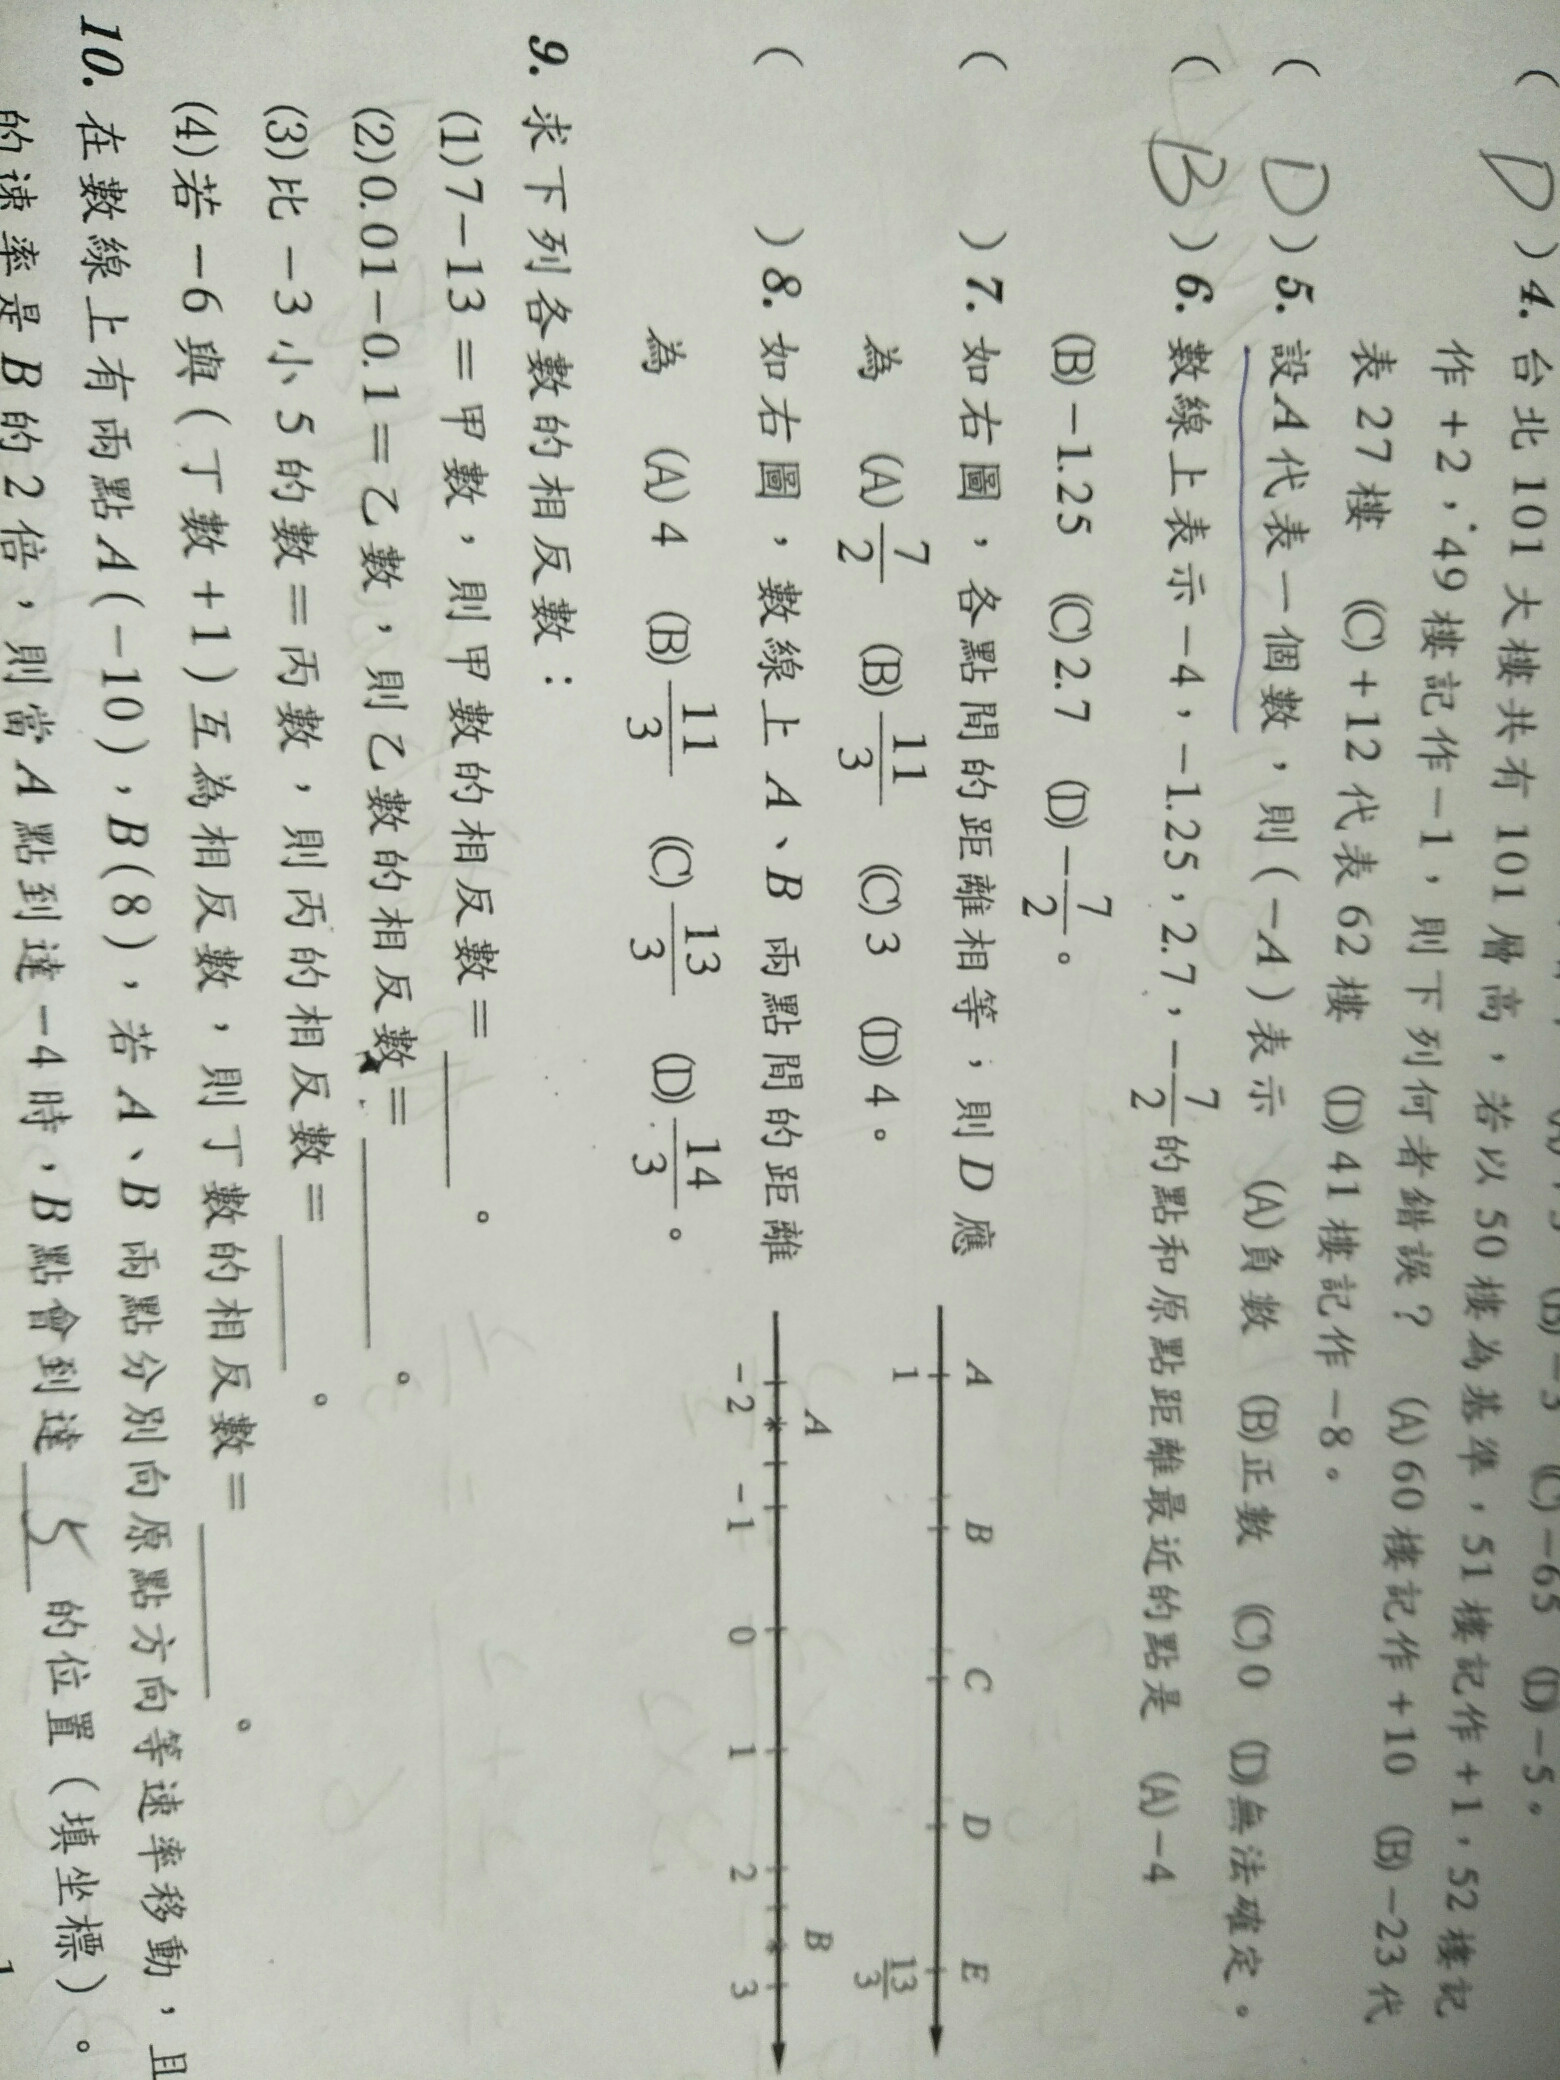 (A)+5 (B)-5 (C)-65 (D)-5。
( D )4. 台北101大樓共有101層高，若以50樓為基準，51樓記作+1，52樓記
作+2，49樓記作-1，則下列何者錯誤？ (A)60樓記作+10 (B)-23代
表27樓 (C)+12代表62樓 (D)41樓記作-8。
( D )5. 設A代表一個數，則(-A)表示 (A)負數 (B)正數 (C)0 (D)無法確定。
( B )6. 數線上表示-4，-1.25，2.7，-7/2的點和原點距離最近的點是 (A)-4
(B)-1.25 (C)2.7 (D)-7/2。
( )7. 如右圖，各點間的距離相等，則D應
為 (A)7/2 (B)11/3 (C)3 (D)4。
A B C D E
1 13/3
( )8. 如右圖，數線上A、B兩點間的距離
為 (A)4 (B)11/3 (C)13/3 (D)14/3。
A B
-2 -1 0 1 2 3
9. 求下列各數的相反數：
(1)7-13=甲數，則甲數的相反數=______。
(2)0.01-0.1=乙數，則乙數的相反數=______。
(3)比-3小5的數=丙數，則丙的相反數=______。
(4)若-6與(丁數+1)互為相反數，則丁數的相反數=______。
10. 在數線上有兩點A(-10)，B(8)，若A、B兩點分別向原點方向等速率移動，且
的速率是B的2倍，則當A點到達-4時，B點會到達 5 的位置(填坐標)。